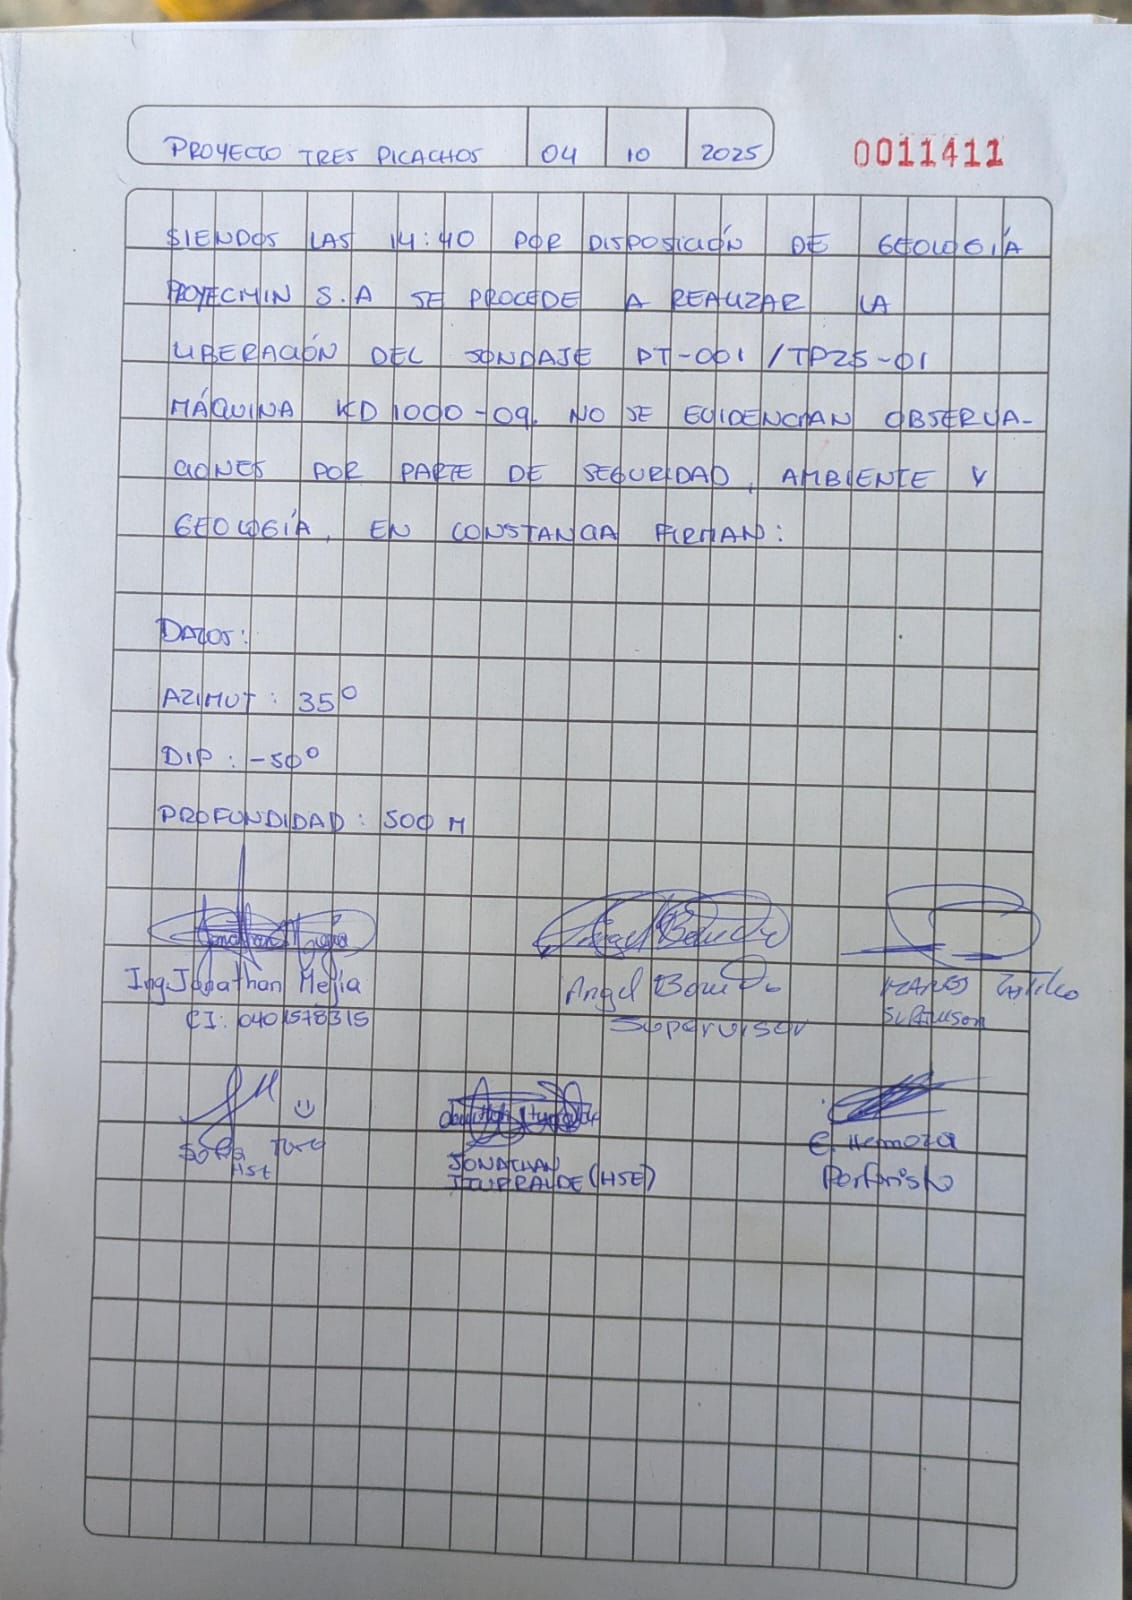 PROYECTO TRES PICACHOS 04 10 2025 0011411
SIENDOS LAS 14:40 POR DISPOSICIÓN DE GEOLOGÍA
PROYECMIN S.A SE PROCEDE A REALIZAR LA
LIBERACIÓN DEL SONDAJE PT-001/TP25-01
MÁQUINA KD1000-09. NO SE EVIDENCIAN OBSERVA-
CIONES POR PARTE DE SEGURIDAD, AMBIENTE Y
GEOLOGÍA, EN CONSTANCIA FIRMAN:
DATOS:
AZIMUT: 35°
DIP: -50°
PROFUNDIDAD: 500 M
Ing. Jonathan Mejia Angel
CI: 0401578315 Supervisor
HSE
JONATHAN
(HSE)
Perforista